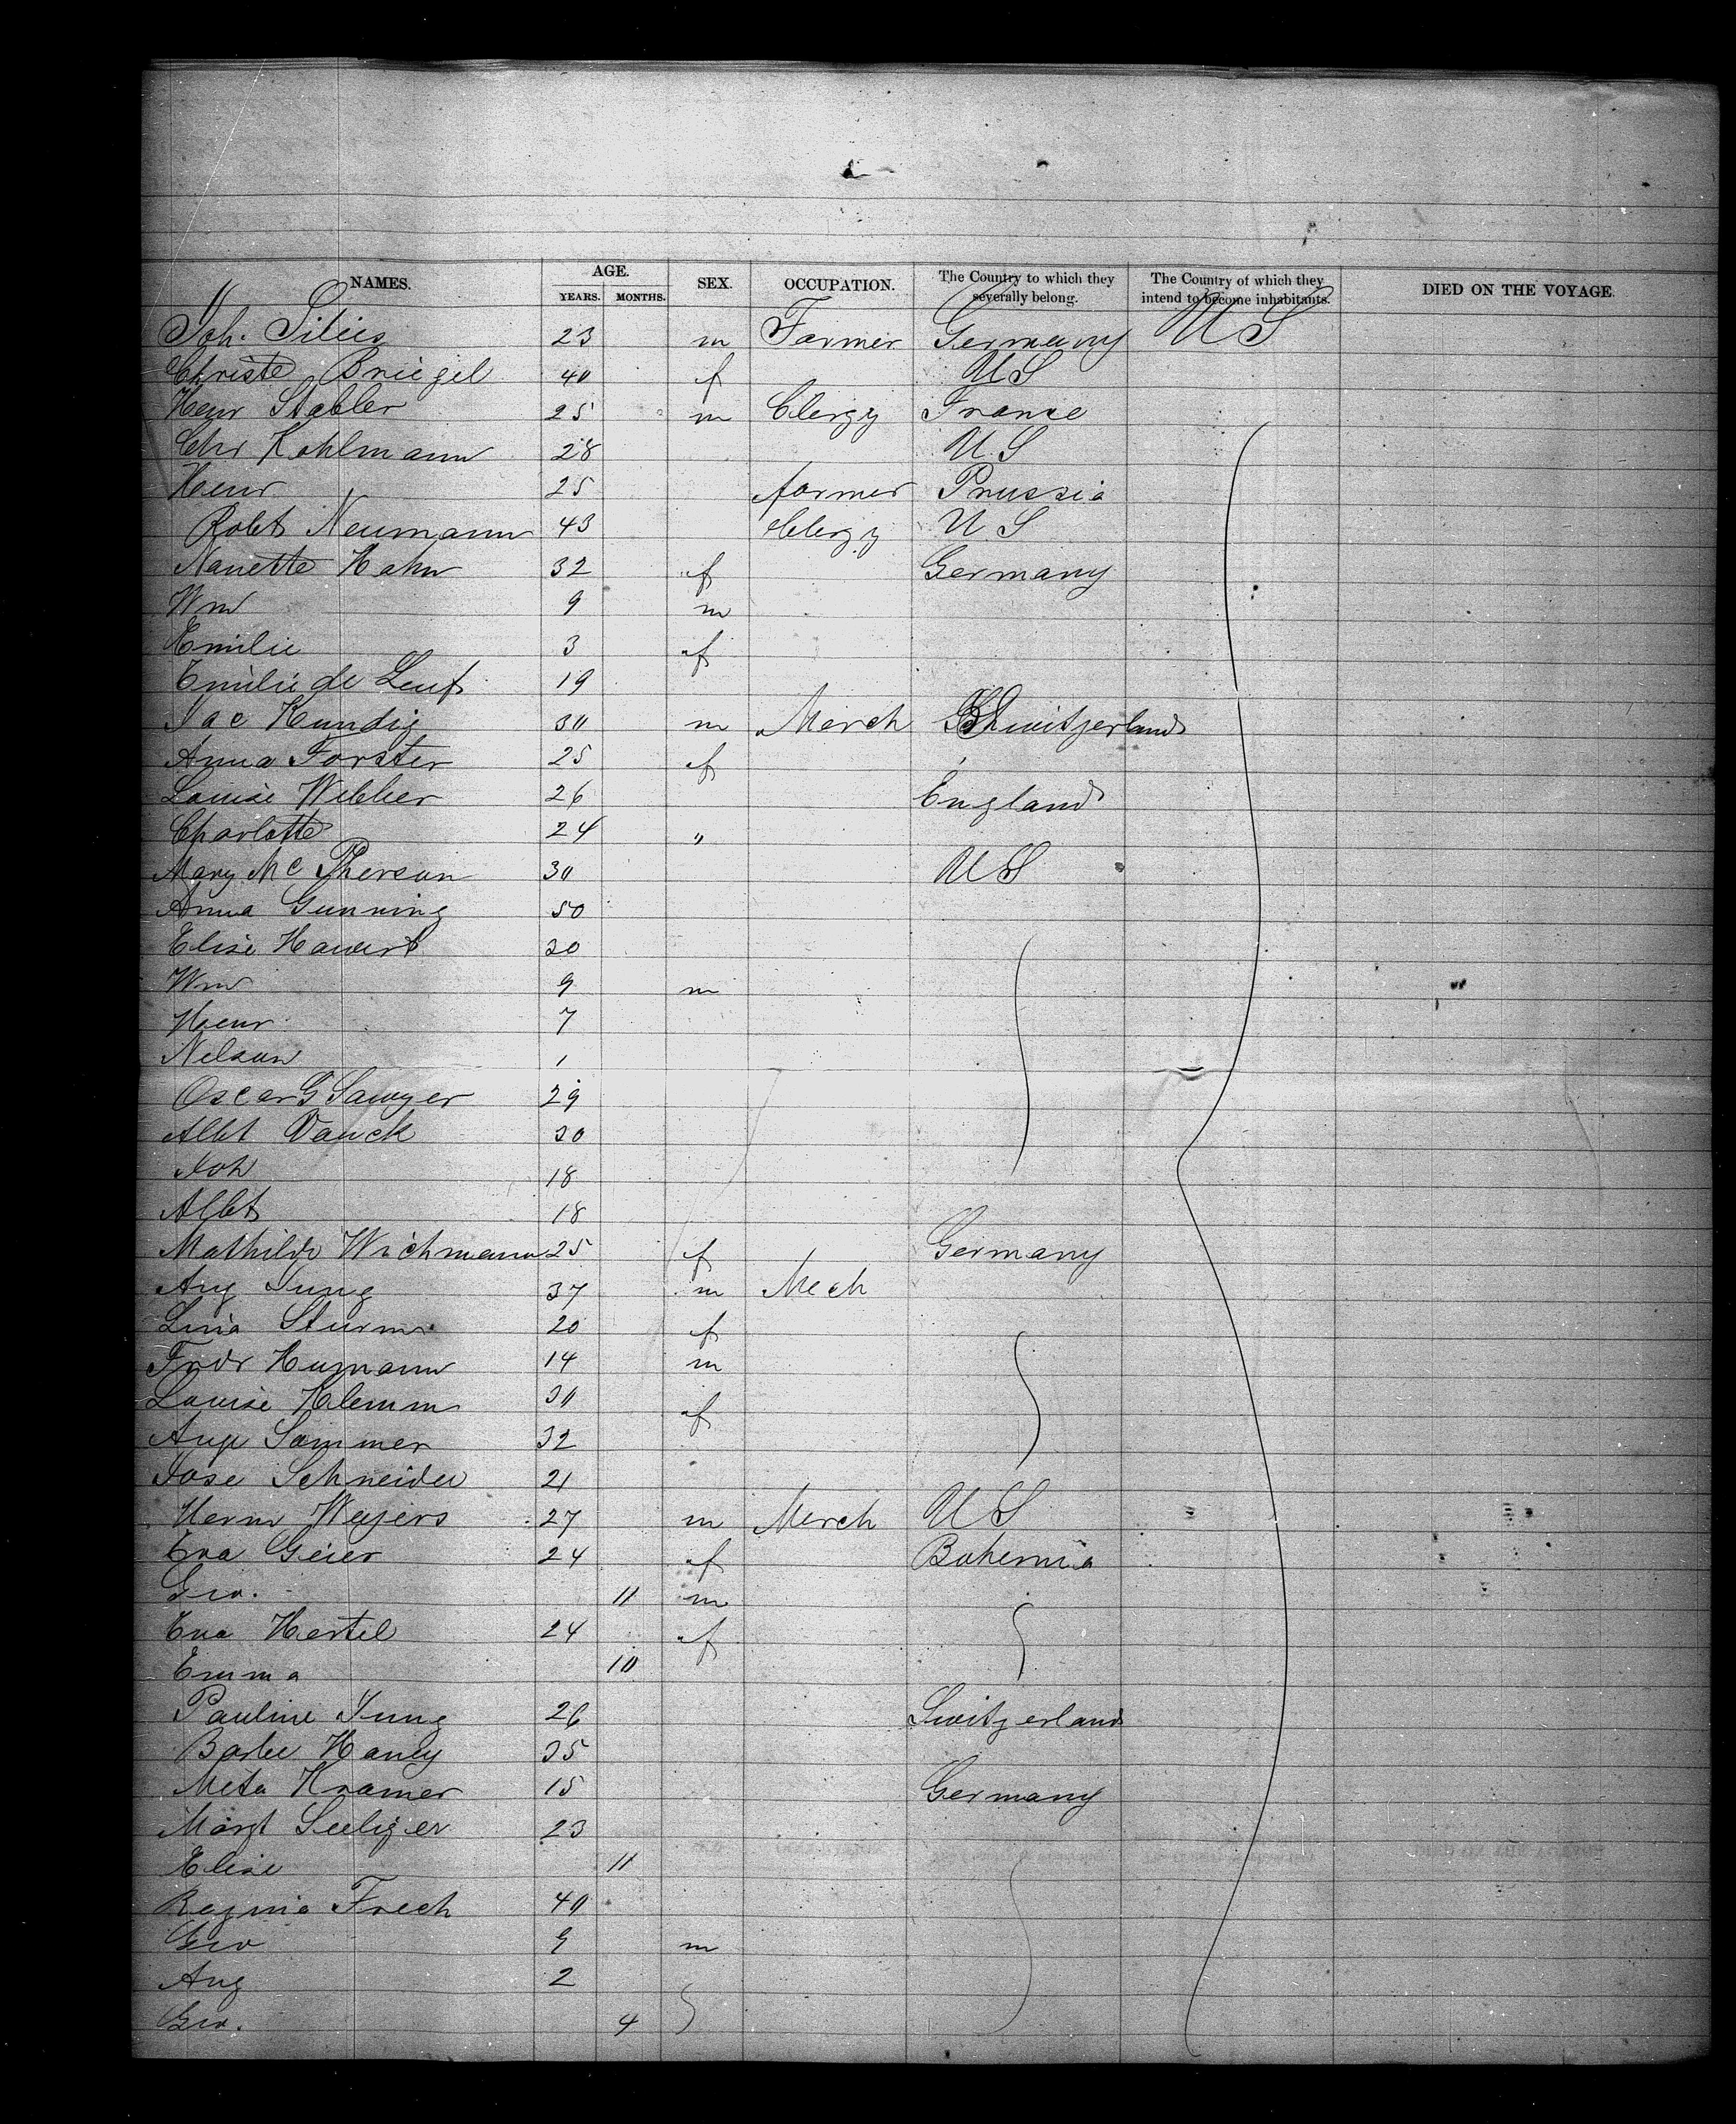 NAMES. AGE. SEX. OCCUPATION. The Country to which they severally belong. The Country of which they intend to become inhabitants. DIED ON THE VOYAGE.
YEARS. MONTHS.
Joh. 23 m Farmer Germany U S
Christe Briegel 40 f U S
Henr Stabler 25 m Clergy France
Chr Kohlmann 28 U. S
Henr 25 farmer Prussia
Robt Neumann 43 Clergy U S
Nanette Hahn 32 f Germany
Wm 9 m
Emilie 3 f
Emilie de 19
Jac Kundig 30 m Merch Switzerland
Anna Forster 25 f
Louise Webber 26 England
Charlotte 24 "
Mary Mc Pherson 30 U S
Anna Gunning 50
Elise 30
Wm 9 m
Henr 7
Nelson 1
Oscar G Sawyer 29
Albt Vanck 30
Joh 18
Albt 18
Mathilde Wichmann 25 f Germany
Aug Jung 37 m Mech
Lina Sturm 20 f
Fredr Humann 14 m
Louise Klemm 30 f
Aug Sommer 32
Jose Schneider 21
Herm Weyers 27 m Merch U S
Eva Geier 24 f Bohemia
Geo. 11 m
Eva Hertel 24 f
Emma 10
Pauline Jung 26 Switzerland
Barbe Haney 35
Meta Kramer 15 Germany
Margt Seeliger 23
Elise 11
Regina Frech 40
Geo 9 m
Aug 2
Geo. 4